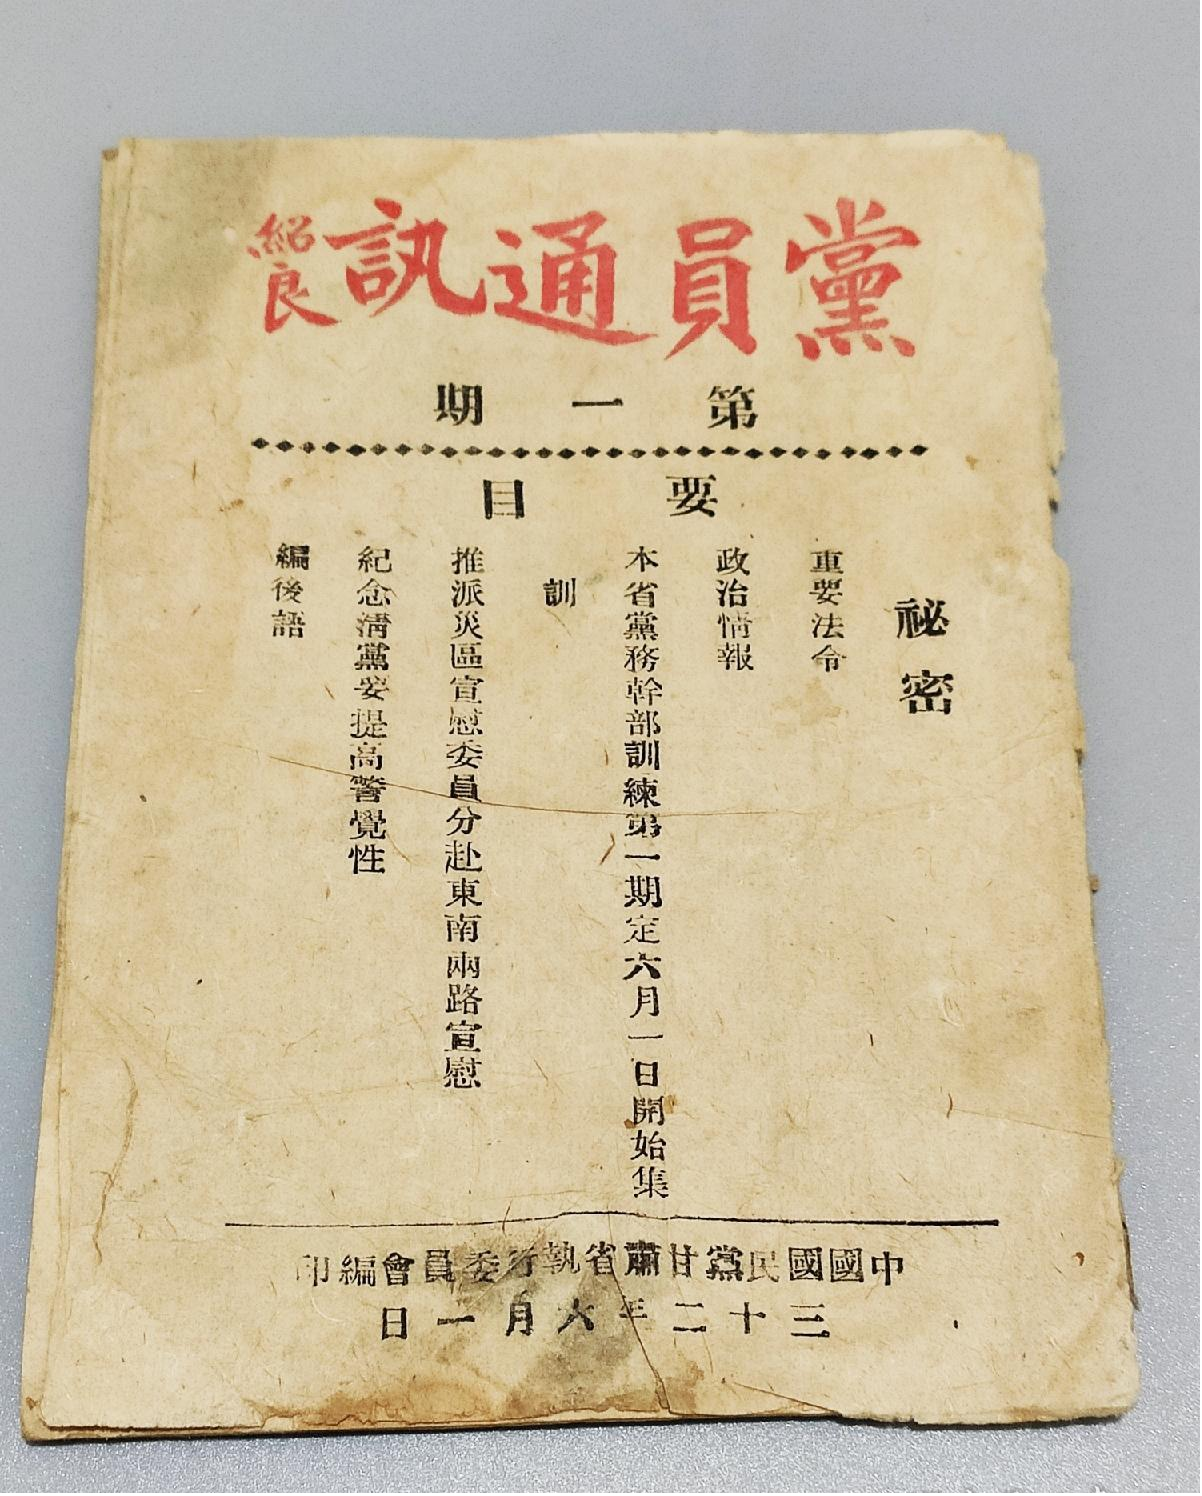 黨員通訊
紹良
第一期
要目
祕密
重要法令
政治情報
本省黨務幹部訓練第一期定六月一日開始集
訓
推派災區宣慰委員分赴東南兩路宣慰
紀念清黨要提高警覺性
編後語
中國國民黨甘肅省執行委員會編印
三十二年六月一日